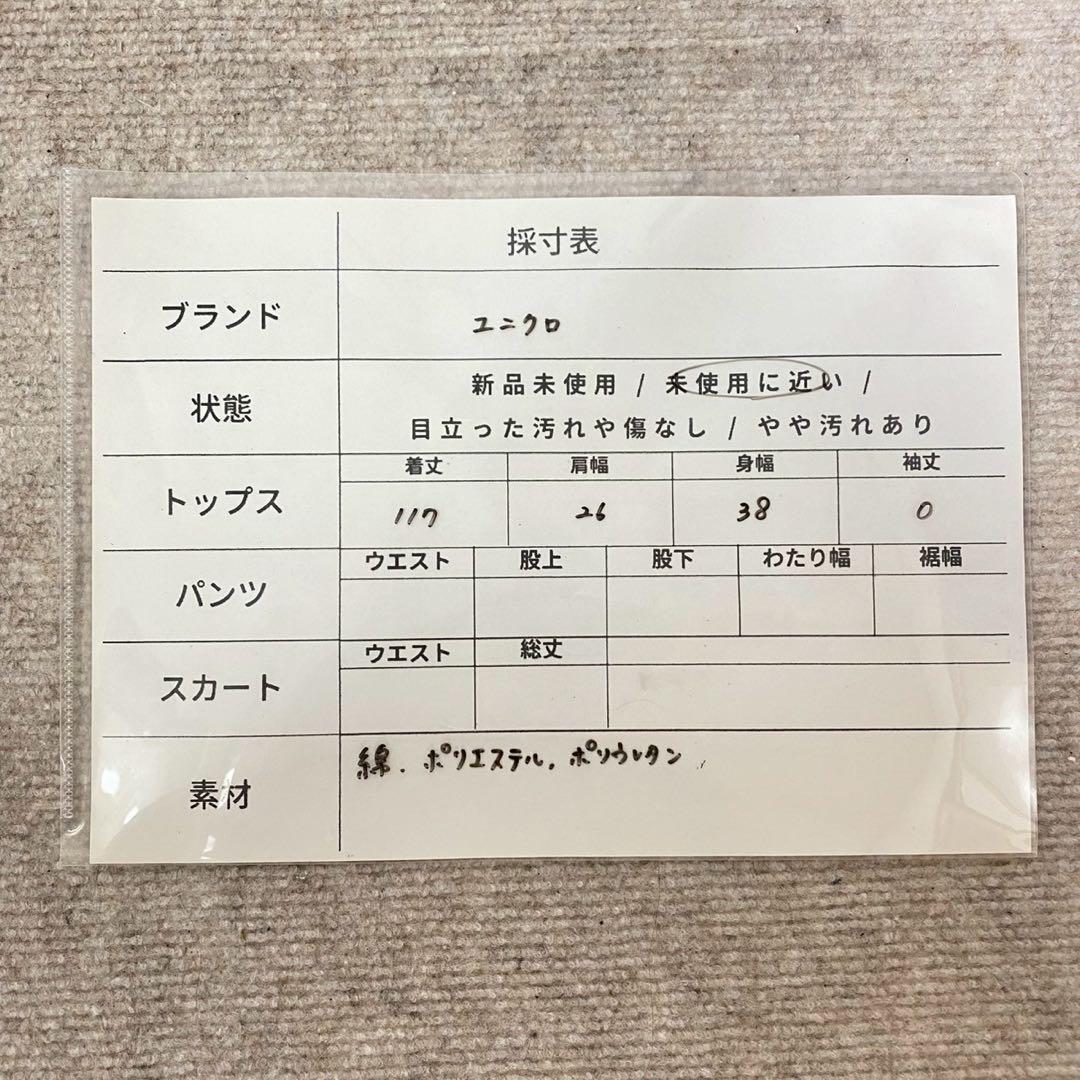 採寸表
ブランド
ユニクロ
状態
新品未使用 / 未使用に近い /
目立った汚れや傷なし / やや汚れあり
トップス
着丈 肩幅 身幅 袖丈
117 26 38 0
パンツ
ウエスト 股上 股下 わたり幅 裾幅
スカート
ウエスト 総丈
素材
綿、ポリエステル、ポリウレタン